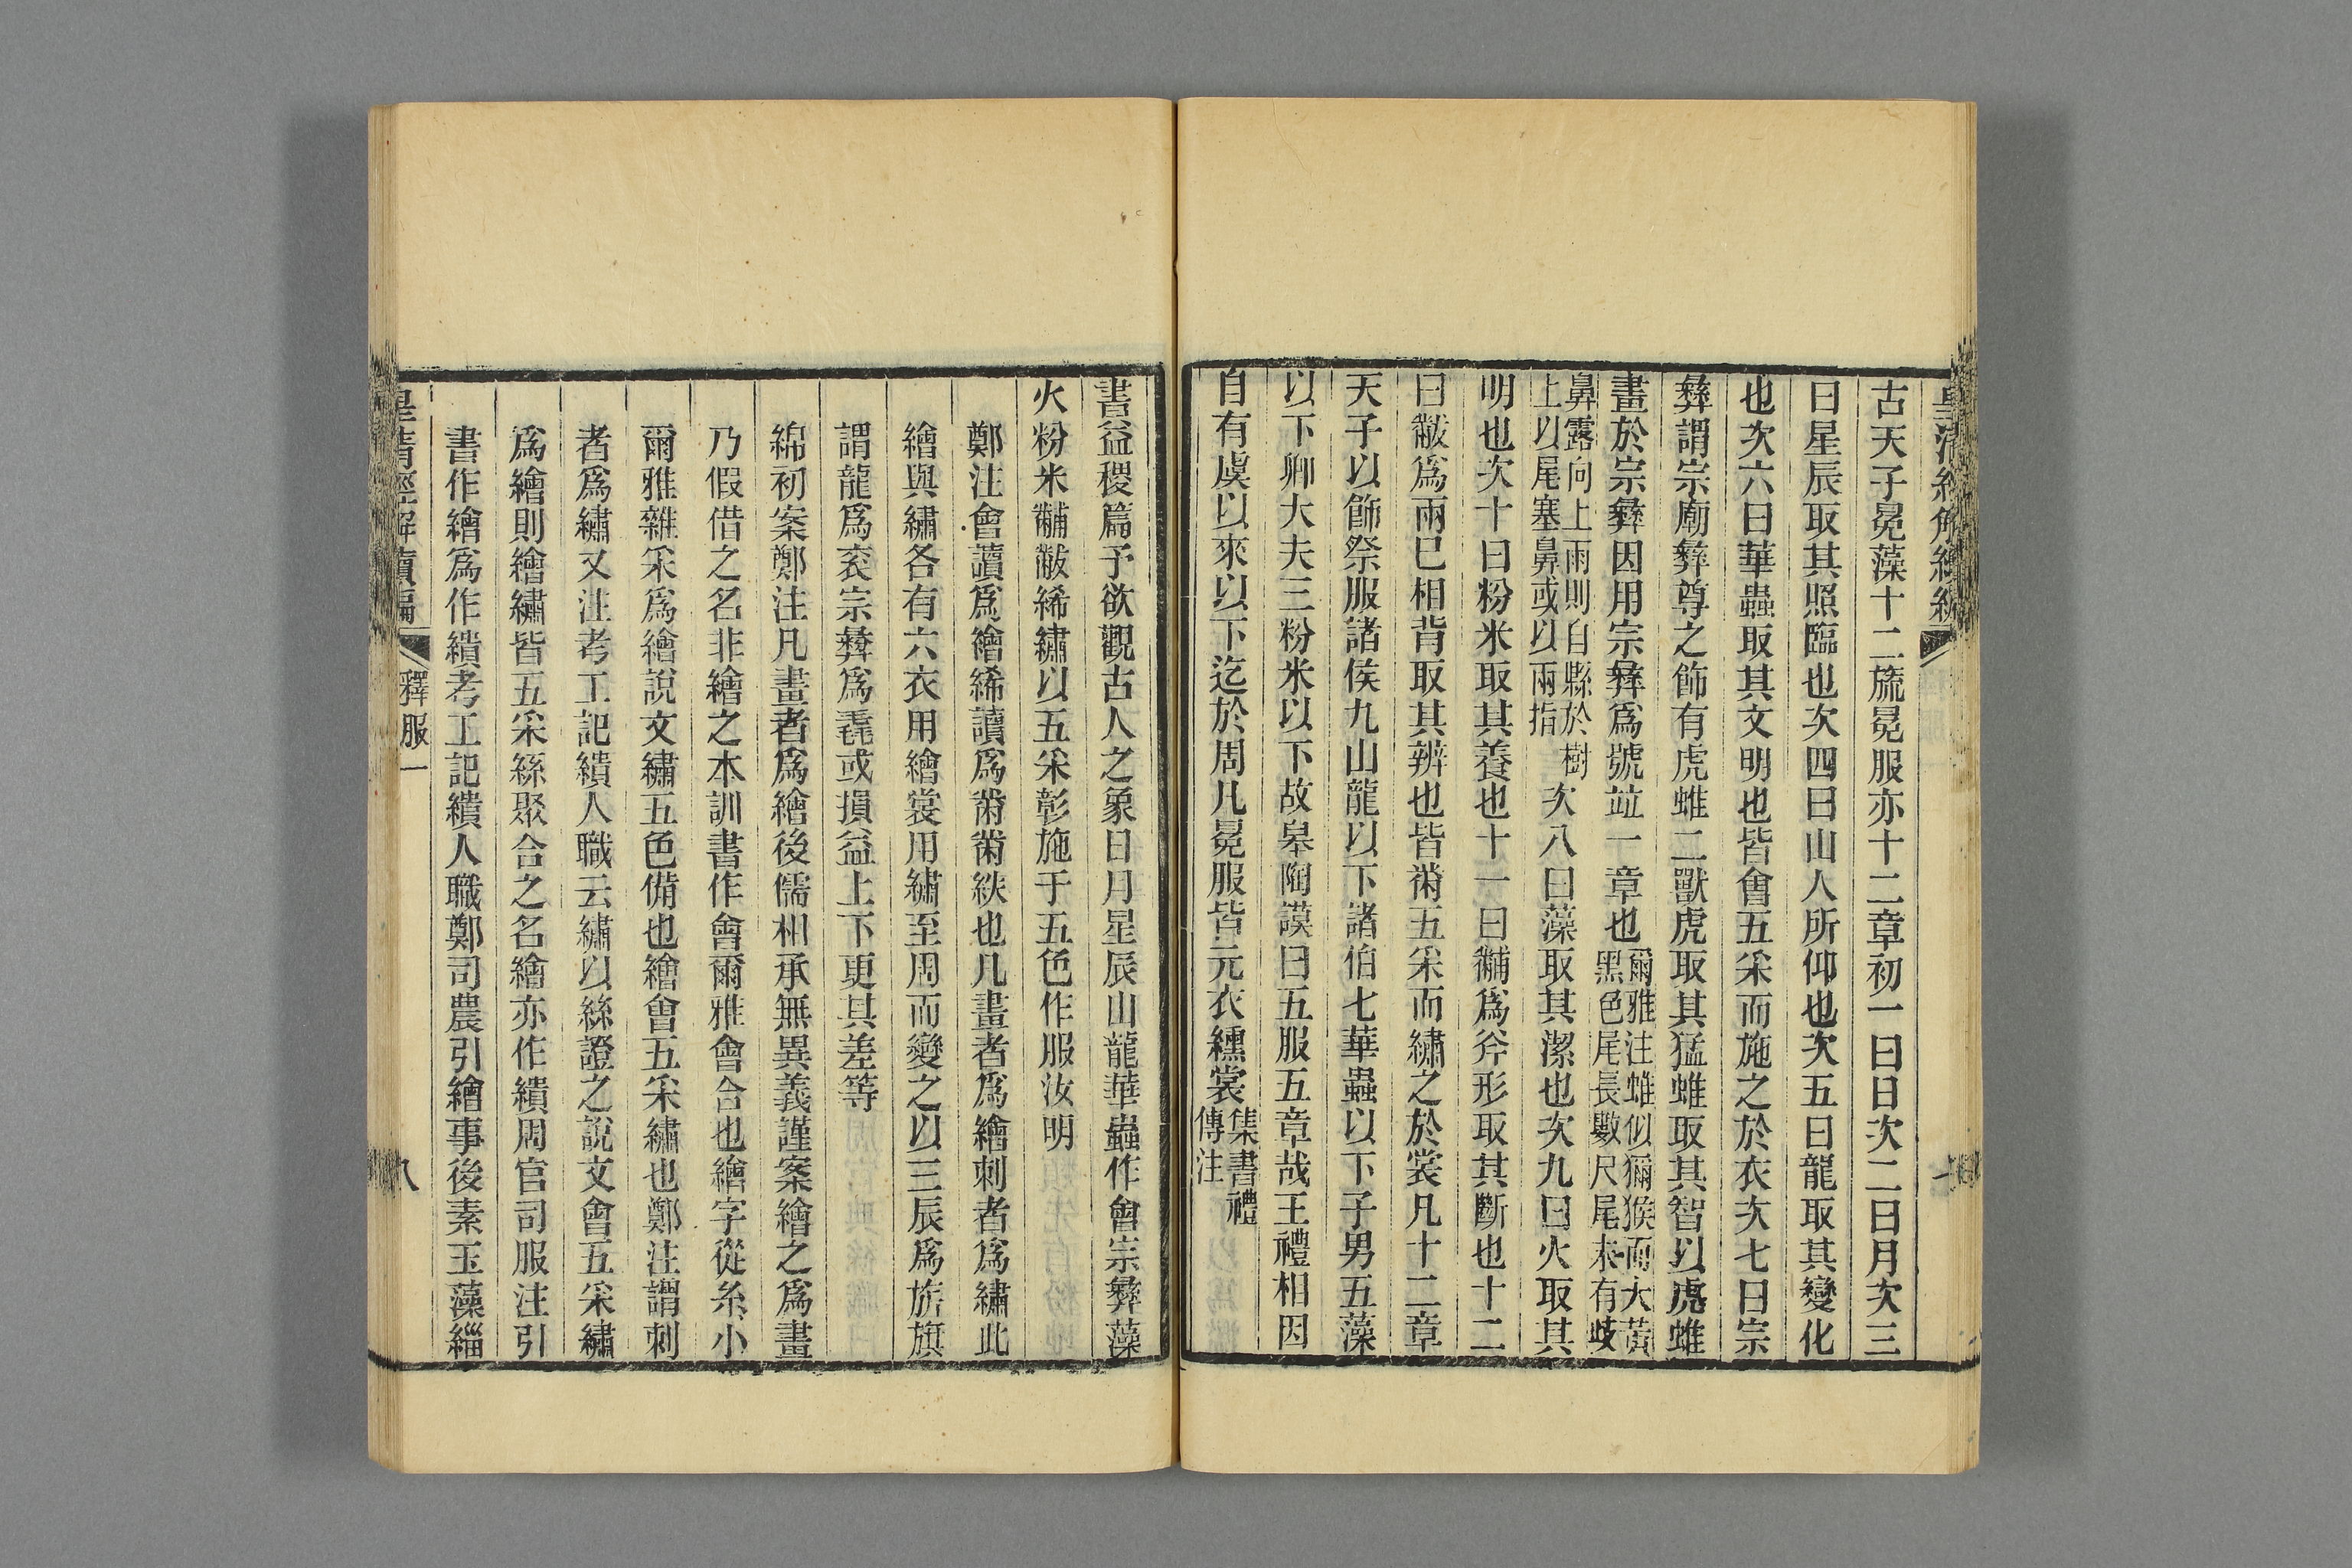 皇清經解續編
古天子冕藻十二旒冕服亦十二章初一曰日次二曰月次三
曰星辰取其照臨也次四曰山人所仰也次五曰龍取其變化
也次六曰華蟲取其文明也皆會五采而施之於衣次七曰宗
彝謂宗廟彝尊之飾有虎蜼二獸虎取其猛蜼取其智以虎蜼
畫於宗彝因用宗彝爲號竝一章也爾雅注蜼似獼猴而大黃
黑色尾長數尺尾末有歧
鼻露向上雨則自縣於樹
上以尾塞鼻或以兩指次八曰藻取其潔也次九曰火取其
明也次十曰粉米取其養也十一曰黼爲斧形取其斷也十二
曰黻爲兩巳相背取其辨也皆黹五采而繡之於裳凡十二章
天子以飾祭服諸侯九山龍以下諸伯七華蟲以下子男五藻
以下卿大夫三粉米以下故皋陶謨曰五服五章哉王禮相因
自有虞以來以下迄於周凡冕服皆元衣纁裳集書禮
傳注
書益稷篇予欲觀古人之象日月星辰山龍華蟲作會宗彝藻
火粉米黼黻絺繡以五采彰施于五色作服汝明
鄭注會讀爲繪絺讀爲黹黹紩也凡畫者爲繪刺者爲繡此
繪與繡各有六衣用繪裳用繡至周而變之以三辰爲旂旗
謂龍爲袞宗彝爲毳或損益上下更其差等
綿初案鄭注凡畫者爲繪後儒相承無異義謹案繪之爲畫
乃假借之名非繪之本訓書作會爾雅會合也繪字從糸小
爾雅雜采爲繪說文繡五色備也繪會五采繡也鄭注謂刺
者爲繡又注考工記繢人職云繡以絲證之說文會五采繡
爲繪則繪繡皆五采絲聚合之名繪亦作繢周官司服注引
書作繪爲作繢考工記繢人職鄭司農引繪事後素玉藻緇
皇清經解續編
釋服一
八